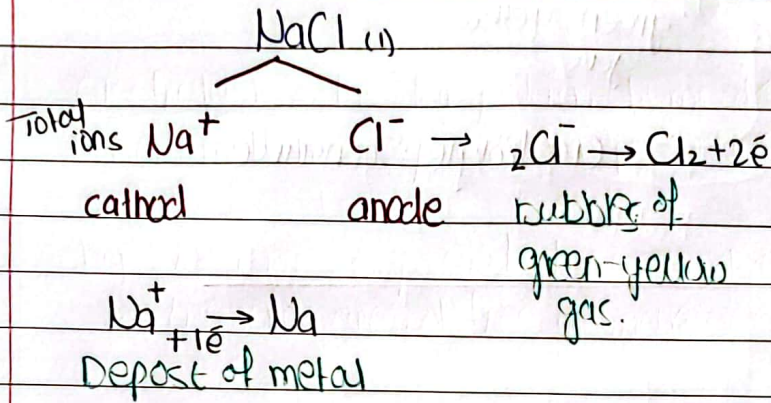 NaCl (l)
Total ions Na⁺ Cl⁻ → 2Cl⁻ → Cl₂ + 2é
cathod anode bubbls of
green-yellow
gas.
Na⁺ +1é → Na
Depost of metal